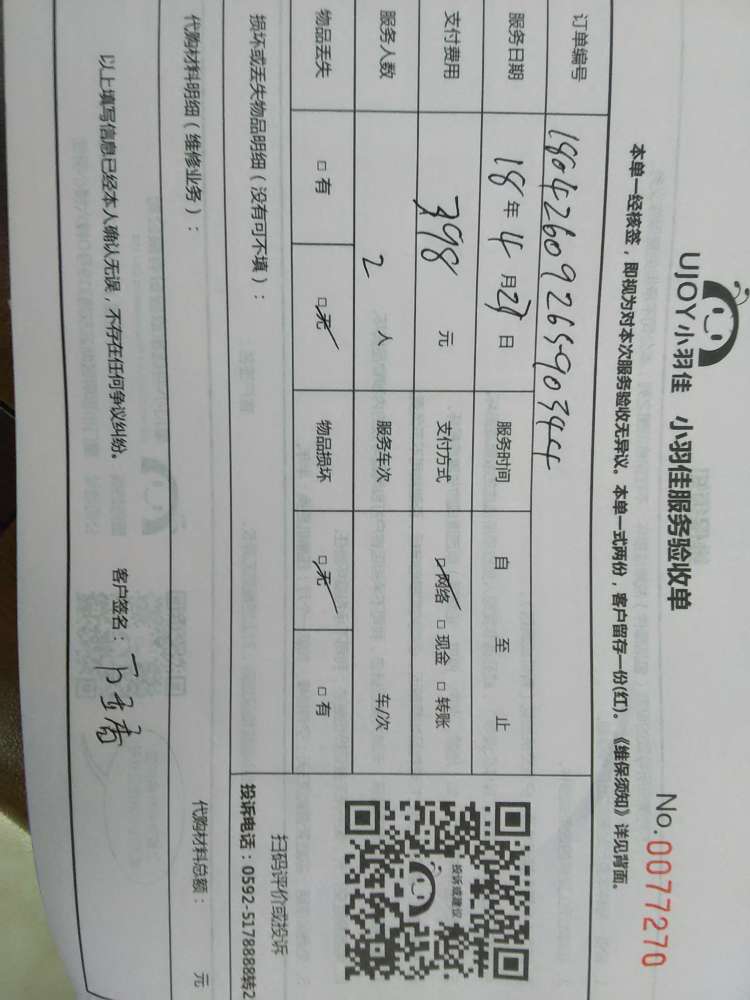 UJOY小羽佳 小羽佳服务验收单
No. 0077270
本单一经核签，即视为对本次服务验收无异议。本单一式两份，客户留存一份(红)。《维保须知》详见背面。
订单编号 1804260926590344
服务日期 18 年 4 月 29 日 服务时间 自 至 止
支付费用 398 元 支付方式 ☑网络 □现金 □转账
服务人数 2 人 服务车次 车/次
物品丢失 □有 ☑无 物品损坏 ☑无 □有
投诉或建议
扫码评价或投诉
投诉电话：0592-5178888转2
损坏或丢失物品明细（没有可不填）：
代购材料明细（维修业务）： 代购材料总额： 元
以上填写信息已经本人确认无误，不存在任何争议纠纷。 客户签名：